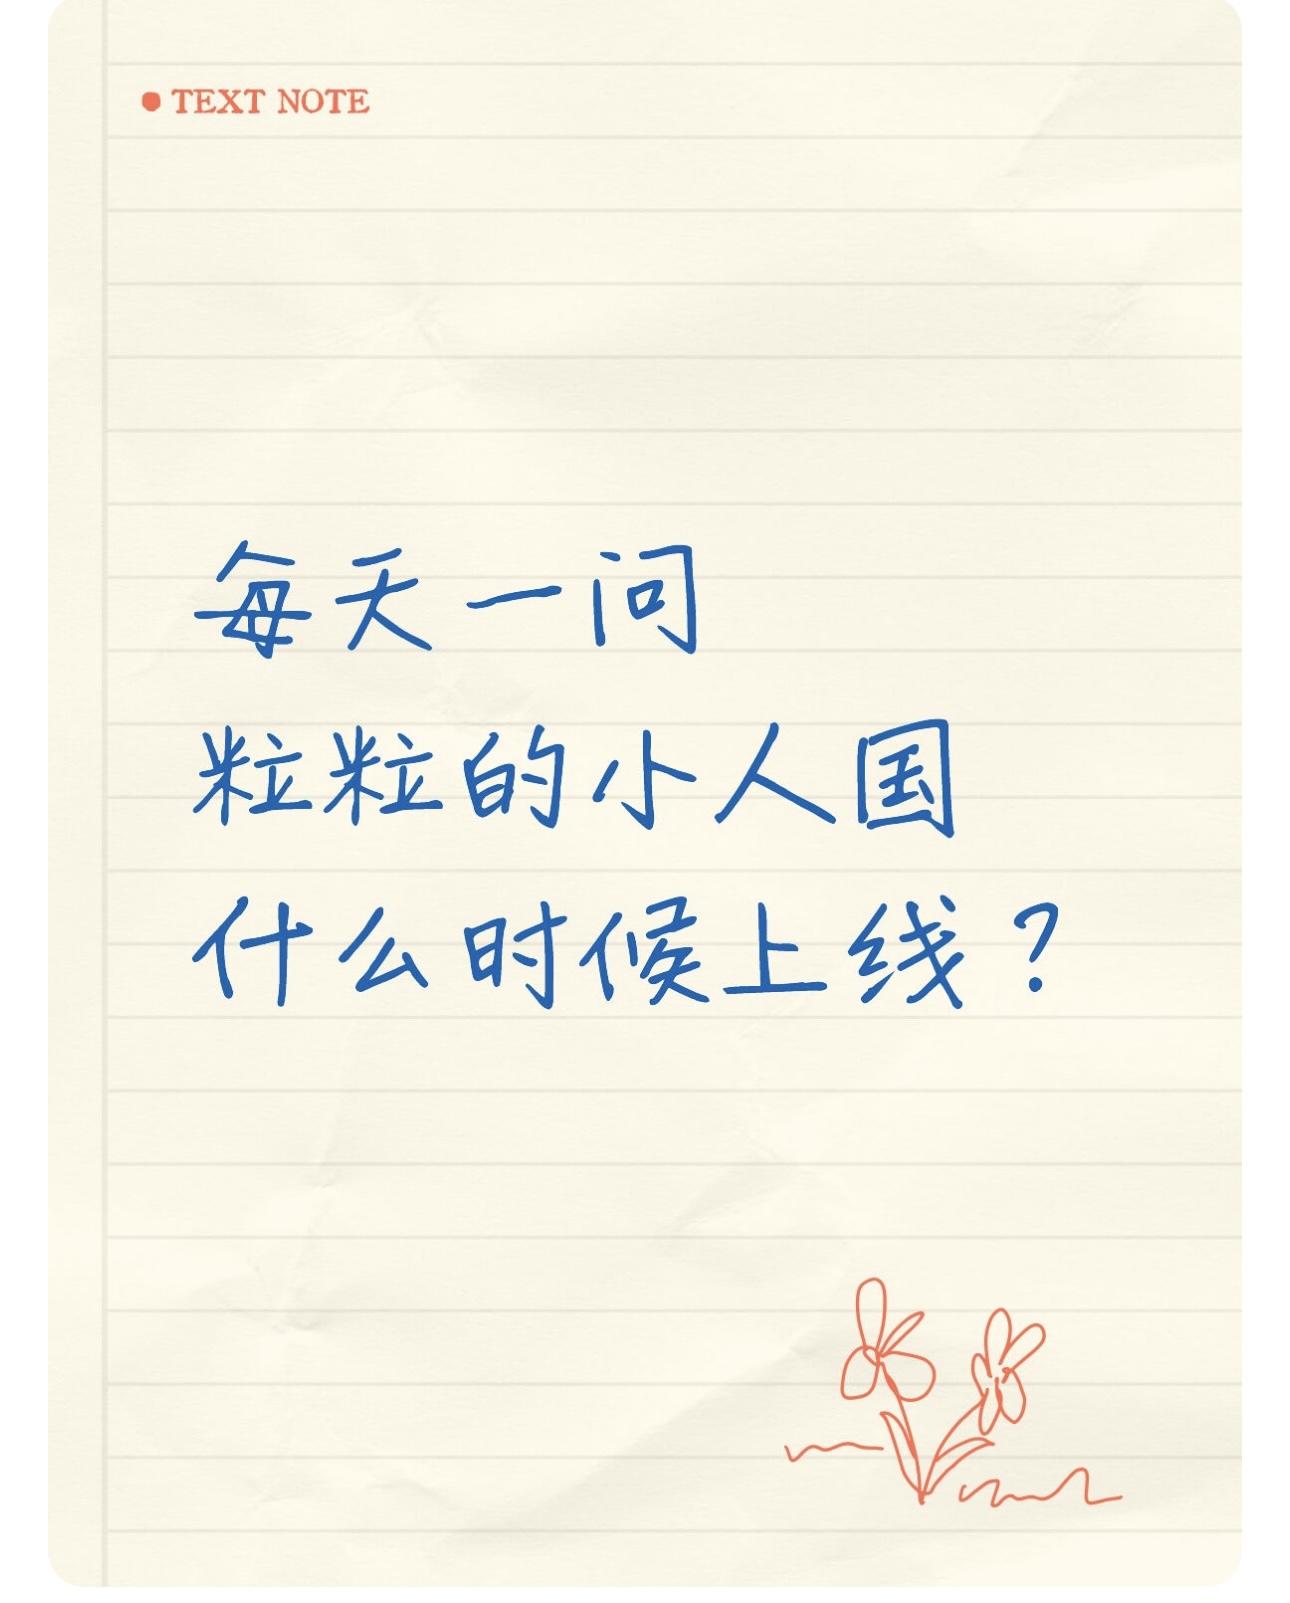 TEXT NOTE
每天一问
粒粒的小人国
什么时候上线？